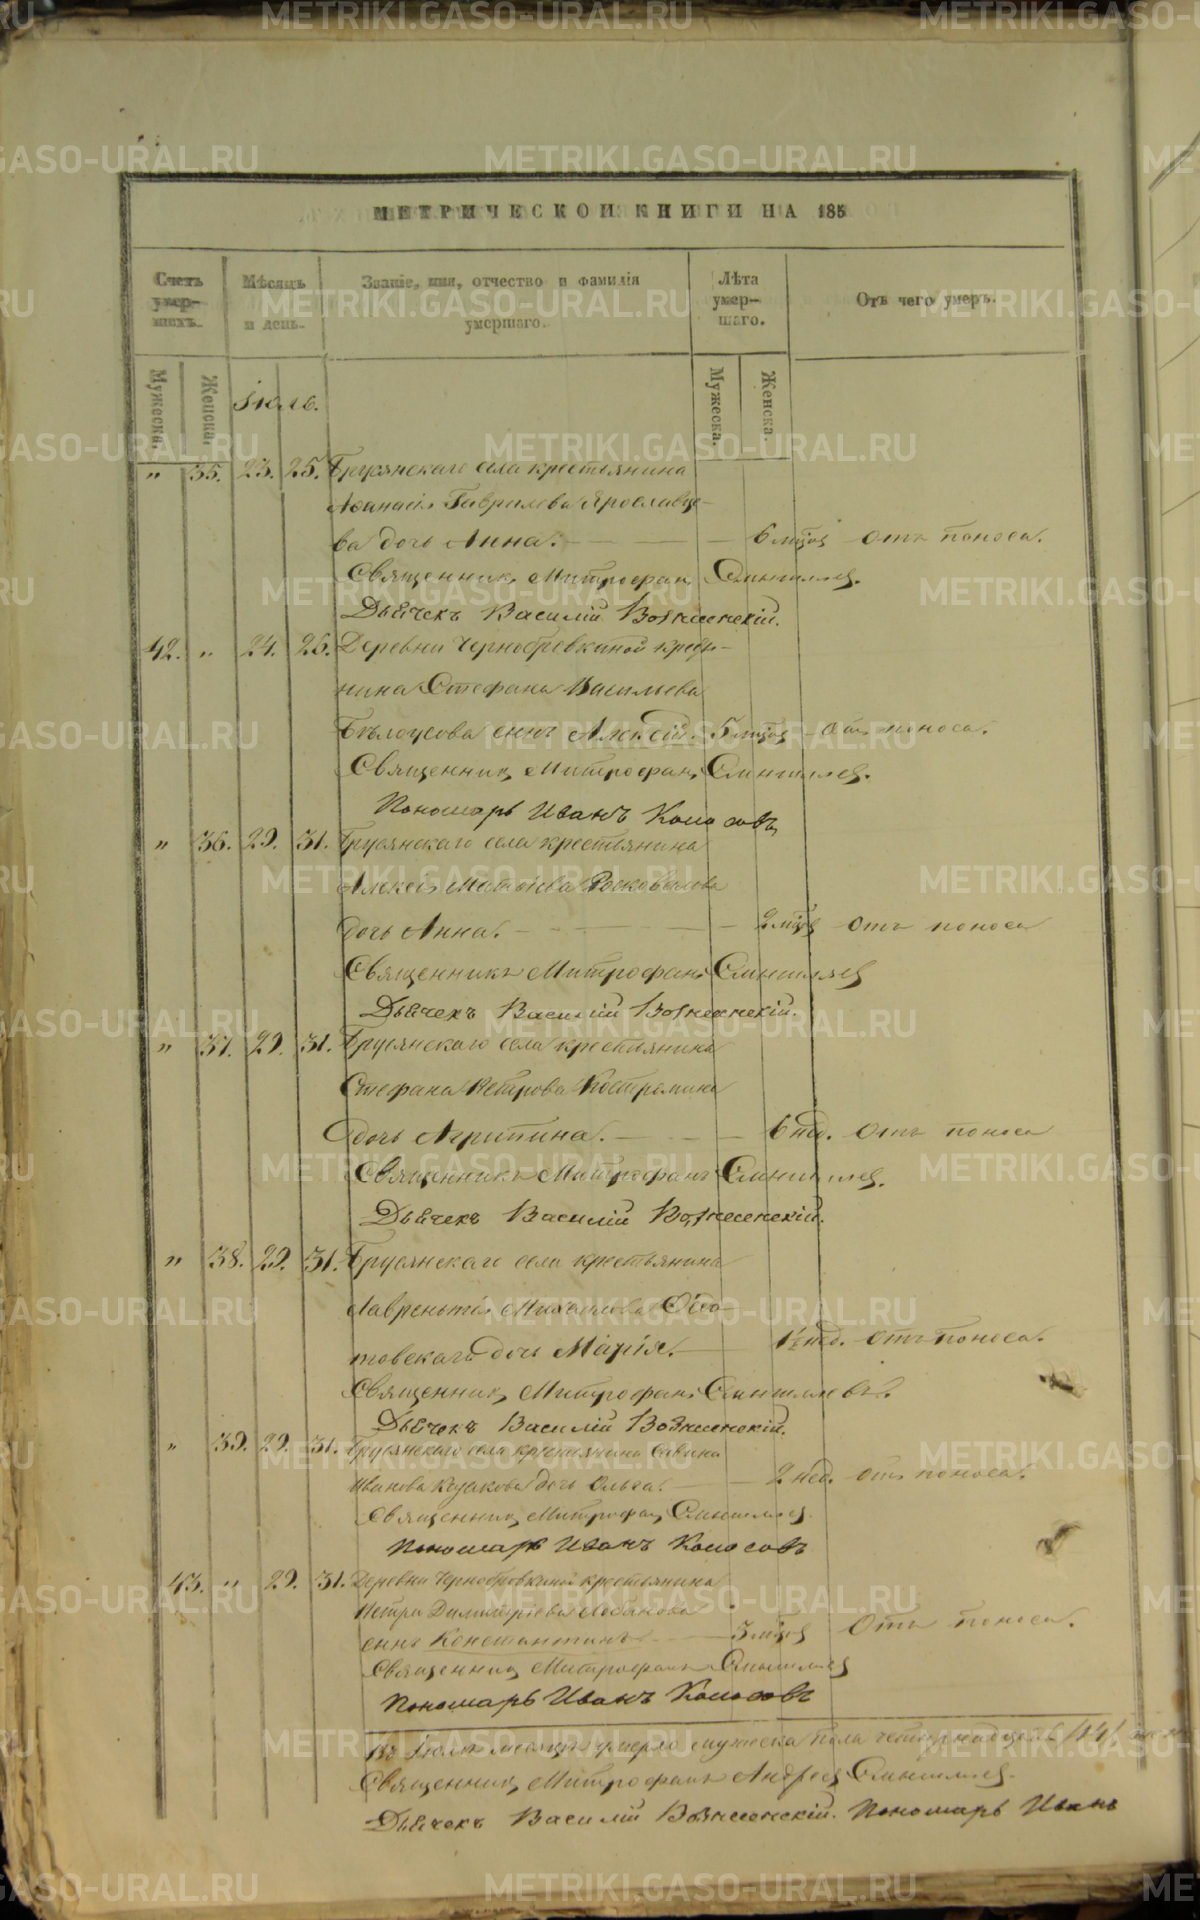 МЕТРИЧЕСКОЙ КНИГИ НА 185
Счетъ умер-шихъ.
Мѣсяцъ и день.
Званіе, имя, отчество и фамилія умершаго.
Лѣта умер-шаго.
Отъ чего умеръ.
Мужеска. Женска. Іюль. Мужеска. Женска.
" 35. 23. 25. Брусянскаго села крестьянина
Аѳанасія Гаврилова Ярославце-
ва дочь Анна. — 6 мцов отъ поноса.
Священникъ Митрофанъ
Дьячекъ Василій Вознесенскій.
42. " 24. 26. Деревни Чернобровкиной кресть-
нина Стефана Васильева
Бѣлоусова сынъ Алексій. 5 мцов отъ поноса.
Священникъ Митрофанъ
Пономарь Иванъ Колосовъ
" 36. 29. 31. Брусянскаго села крестьянина
Алексія Матвѣева
дочь Анна. — 2 мцов отъ поноса
Священникъ Митрофанъ
Дьячекъ Василій Вознесенскій.
" 37. 29. 31. Брусянскаго села крестьянина
Стефана Петрова Костромина
дочь Агрипина. — 6 нед. отъ поноса
Священникъ Митрофанъ
Дьячекъ Василій Вознесенскій.
" 38. 29. 31. Брусянскаго села крестьянина
Лаврентія Михаилова
дочь Марія. — 1½ нед. отъ поноса.
Священникъ Митрофанъ
Дьячекъ Василій Вознесенскій.
" 39. 29. 31. Брусянскаго села крестьянина Савина
Иванова Казакова дочь Ольга. — 2 нед. отъ поноса.
Священникъ Митрофанъ
Пономарь Иванъ Колосовъ
43. " 29. 31. Деревни Чернобровкиной крестьянина
Петра Димитріева Лобанова
сынъ Константинъ — 3 мцов отъ поноса.
Священникъ Митрофанъ
Пономарь Иванъ Колосовъ
Въ Іюлѣ месяцѣ умерло мужеска пола четырнадцать /14/
Священникъ Митрофанъ Андреев
Дьячекъ Василій Вознесенскій. Пономарь Иванъ
METRIKI.GASO-URAL.RU